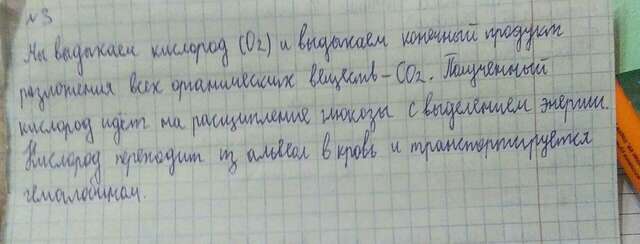 №3
Мы выдыхаем кислород (O2) и выдыхаем конечный продукт
разложения всех органических веществ – CO2. Полученный
кислород идёт на расщипление глюкозы с выделением энергии.
Кислород переходит из альвеол в кровь и транспортируется
гемаглобинам.